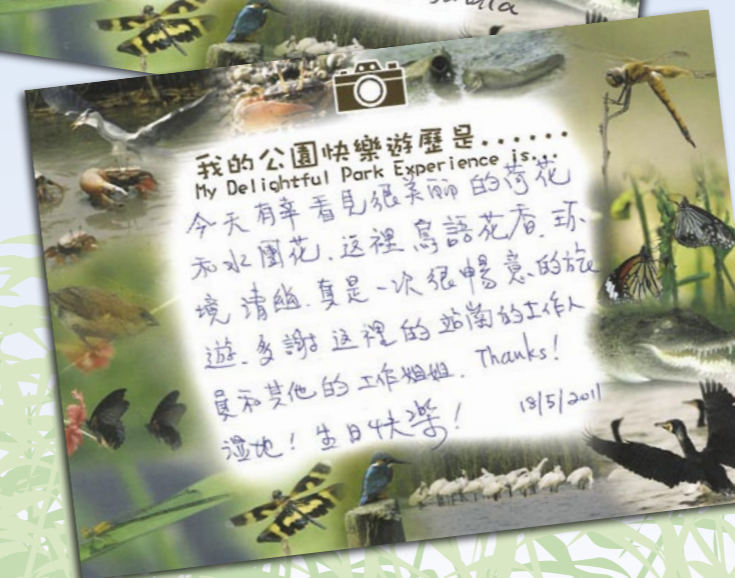 我的公園快樂遊歷是......
My Delightful Park Experience is...
今天有幸看見很美丽的荷花
和水團花、这裡鳥語花香、环
境清幽、真是一次很暢意的旅
遊、多謝这裡的站崗的工作人
員和其他的工作姐姐. Thanks!
濕地!生日快樂!
18/5/2011